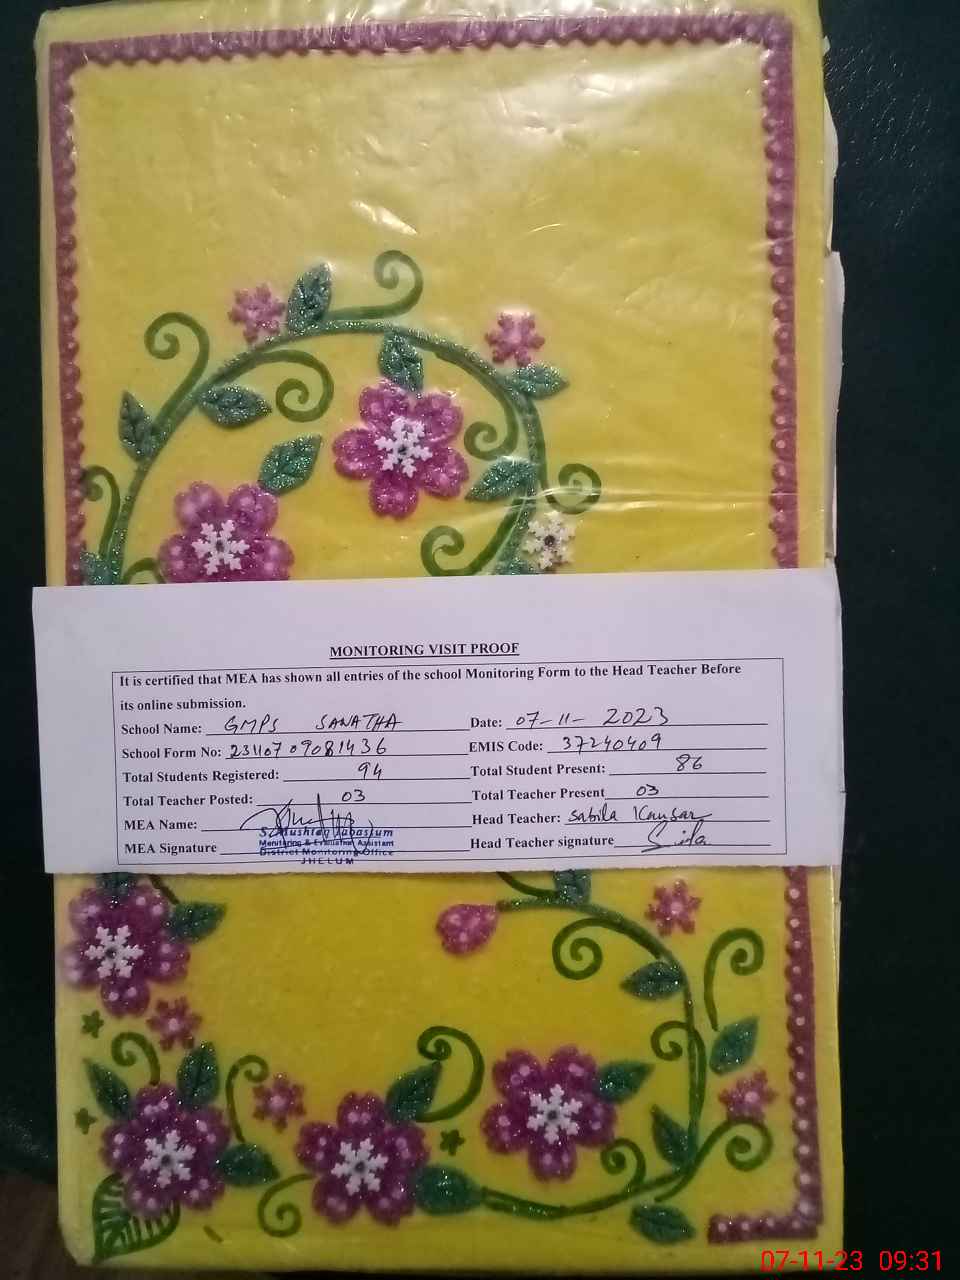 MONITORING VISIT PROOF
It is certified that MEA has shown all entries of the school Monitoring Form to the Head Teacher Before
its online submission.
School Name: GMPS SANATHA Date: 07-11-2023
School Form No: 23110709081436 EMIS Code: 37240409
Total Students Registered: 94 Total Student Present: 86
Total Teacher Posted: 03 Total Teacher Present 03
MEA Name: Head Teacher: Sabila Kausar
MEA Signature Head Teacher signature
Monitoring & Evaluation Assistant
District Monitoring Office
JHELUM
07-11-23 09:31